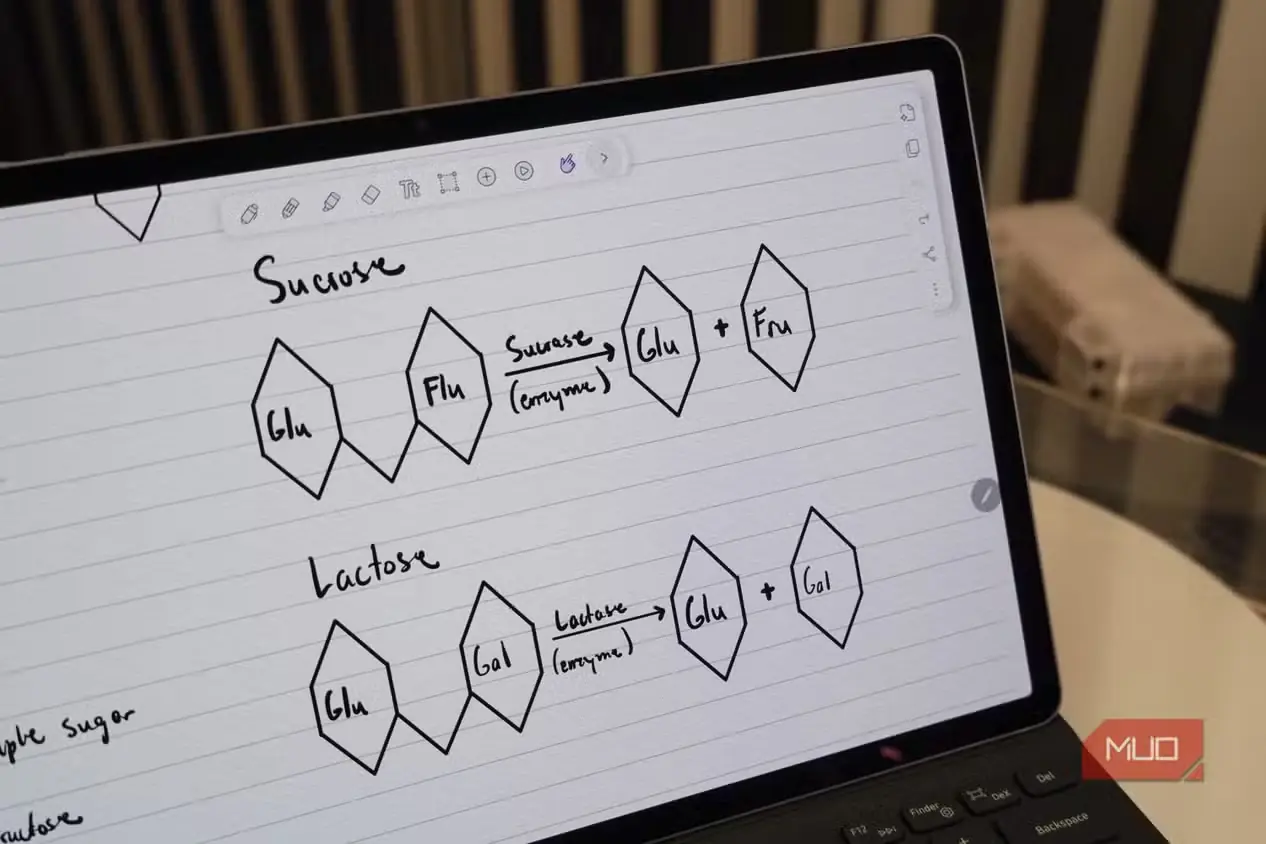 Tt
Sucrose
Glu
Flu
Sucrase
(enzyme)
Glu
+
Fru
Lactose
Glu
Gal
Lactase
(enzyme)
Glu
+
Gal
sugar
MUO
F12
Finder
DeX
Del
Backspace